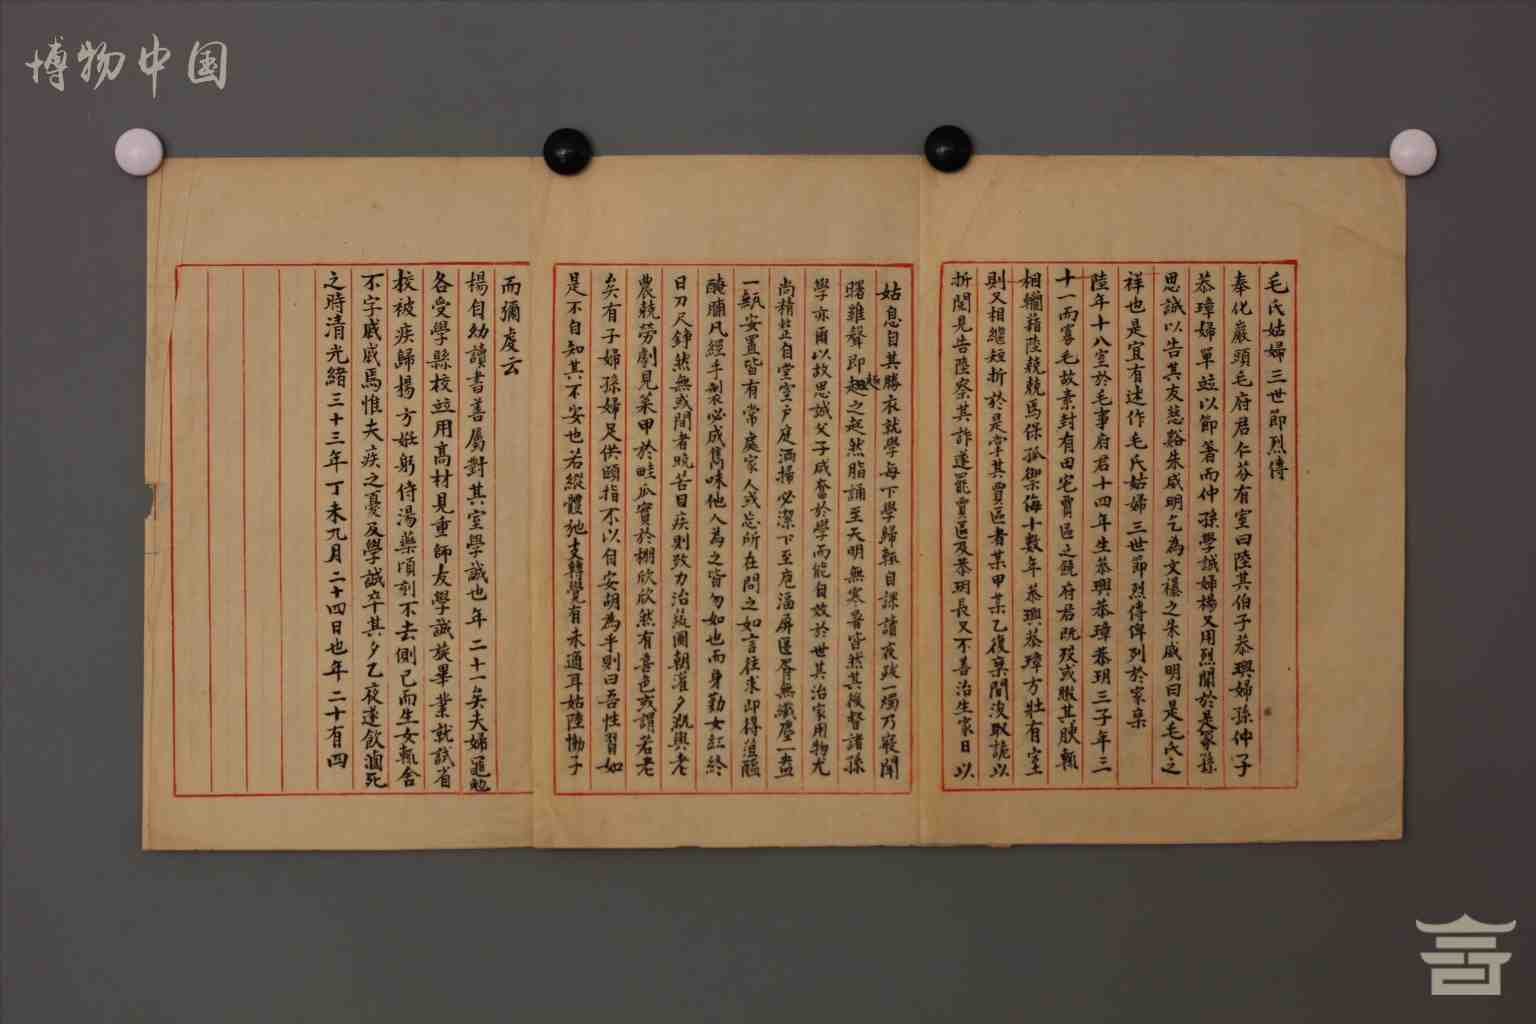 博物中国
毛氏姑婦三世節烈傳
奉化巖頭毛府君仁芬有室曰陸其伯子恭輿婦孫仲子
恭璋婦單竝以節著而仲孫學誠婦楊又用烈聞於是冢孫
思誠以告其友慈谿朱威明乞為文襮之朱威明曰是毛氏之
祥也是宜有述作毛氏姑婦三世節烈傳俾列於家乘
陸年十八室於毛事府君十四年生恭輿恭璋恭玥三子年三
十一而寡毛故素封有田宅賈區之饒府君既歿或朘其腴輒
相轥藉陸兢兢焉保孤禦侮十數年恭輿恭璋方壯有室
則又相繼短折於是掌其賈區者某甲某乙復乘間沒取詭以
折閱見告陸察其詐遂罷賈區及恭玥長又不善治生家日以
姑息自其勝衣就學每下學歸輒自課讀夜跋一燭乃寢聞
曙雞聲即趣之起然脂誦至天明無寒暑皆然其後督諸孫
學亦爾以故思誠父子咸奮於學而能自效於世其治家用物尤
尚精整自堂室戶庭洒掃必潔下至庖湢屏匽胥無纖塵一盎
一甒安置皆有常處家人或忘所在問之如言往求即得菹醢
醃脯凡經手製必咸雋味他人為之皆勿如也而身勤女紅終
日刀尺錚然無或間者晚苦目疾則致力治蔬圃朝灌夕溉與老
農競勞劇見菜甲於畦瓜實於棚欣欣然有喜色或謂若老
矣有子婦孫婦足供頤指不以自安胡為乎則曰吾性習如
是不自知其不安也若縱體弛支轉覺有未適耳姑陸慟子
而彌虔云
楊自幼讀書善屬對其室學誠也年二十一矣夫婦黽勉
各受學縣校竝用高材見重師友學誠旋畢業就試省
校被疾歸楊方妊躬侍湯藥頃刻不去側已而生女輒舍
不字戚戚焉惟夫疾之憂及學誠卒其夕乙夜遂飲滷死
之時清光緒三十三年丁未九月二十四日也年二十有四